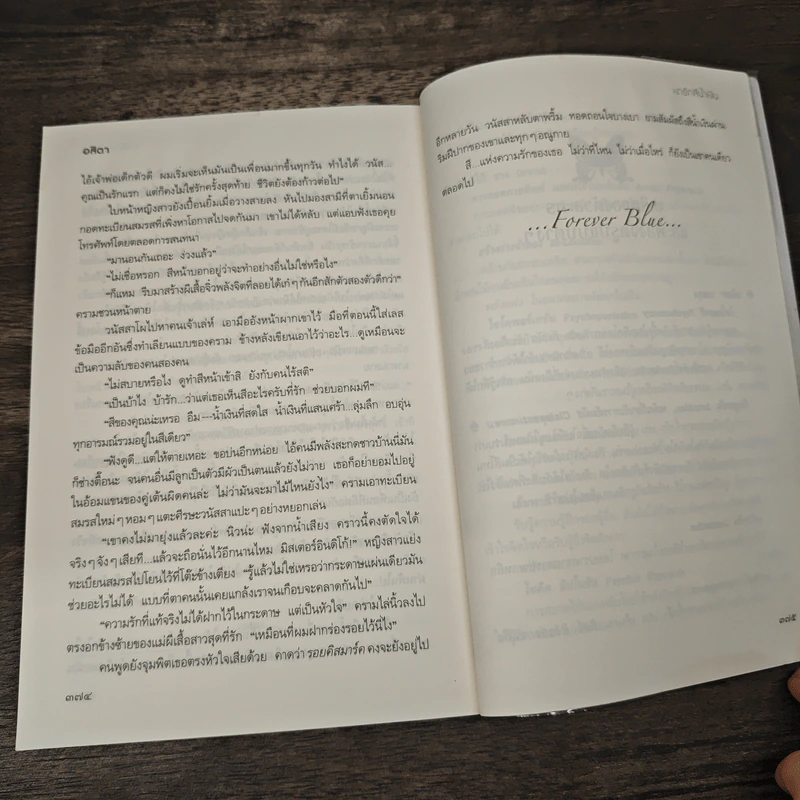 อสิตา
ไอ้เจ้าพ่อเด็กตัวดี ผมเริ่มจะเห็นมันเป็นเพื่อนมากขึ้นทุกวัน ทำไงได้ วนัส...
คุณเป็นรักแรก แต่ก็คงไม่ใช่รักครั้งสุดท้าย ชีวิตยังต้องก้าวต่อไป”
ใบหน้าหญิงสาวยังเปื้อนยิ้มเมื่อวางสายลง หันไปมองสามีที่ตาเยิ้มนอน
กอดทะเบียนสมรสที่เพิ่งหาโอกาสไปจดกันมา เขาไม่ได้หลับ แต่แอบฟังเธอคุย
โทรศัพท์โดยตลอดการสนทนา
“มานอนกันเถอะ ง่วงแล้ว”
“ไม่เชื่อหรอก สีหน้าบอกอยู่ว่าจะทำอย่างอื่นไม่ใช่หรือไง”
“ก็แหม รีบมาสร้างผีเสื้อจิ๋วพลังจิตที่ลอยได้เก่ๆ กันอีกสักตัวสองตัวดีกว่า”
ครามชวนหน้าตาย
วนัสสาโผไปหาคนเจ้าเล่ห์ เอามืออังหน้าผากเขาไว้ มือที่ตอนนี้ใส่เลส
ข้อมืออีกอันซึ่งทำเลียนแบบของคราม ข้างหลังเขียนเอาไว้ว่าอะไร...ดูเหมือนจะ
เป็นความลับของคนสองคน
“ไม่สบายหรือไง ดูทำสีหน้าเข้าสิ ยังกับคนไร้สติ”
“เป็นบ้าไง บ้ารัก...ว่าแต่เธอเห็นสีอะไรครับที่รัก ช่วยบอกผมที”
“สีของคุณน่ะเหรอ อืม---น้ำเงินที่สดใส น้ำเงินที่แสนเศร้า...ลุ่มลึก อบอุ่น
ทุกอารมณ์รวมอยู่ในสีเดียว”
“ฟังดูดี...แต่ให้ตายเหอะ ขอบ่นอีกหน่อย ไอ้คนมีพลังสะกดชาวบ้านนี่มัน
ก็ช่างตื๊อนะ จนคนอื่นมีลูกเป็นตัวมีผัวเป็นตนแล้วยังไม่วาย เธอก็อย่ายอมไปอยู่
ในอ้อมแขนของคู่เต้นผิดคนล่ะ ไม่ว่ามันจะมาไม้ไหนยังไง” ครามเอาทะเบียน
สมรสใหม่ๆ หอมๆ แตะศีรษะวนัสสาแปะๆ อย่างหยอกเล่น
“เขาคงไม่มายุ่งแล้วละค่ะ นิวน่ะ ฟังจากน้ำเสียง คราวนี้คงตัดใจได้
จริงๆ จังๆ เสียที...แล้วจะถือนั่นไว้อีกนานไหม มิสเตอร์อินดิโก้!” หญิงสาวแย่ง
ทะเบียนสมรสไปโยนไว้ที่โต๊ะข้างเตียง “รู้แล้วไม่ใช่เหรอว่ากระดาษแผ่นเดียวมัน
ช่วยอะไรไม่ได้ แบบที่ตาคนนั้นเคยแกล้งเราจนเกือบจะคลาดกันไป”
“ความรักที่แท้จริงไม่ได้ฝากไว้ในกระดาษ แต่เป็นหัวใจ” ครามไล่นิ้วลงไป
ตรงอกข้างซ้ายของแม่ผีเสื้อสาวสุดที่รัก “เหมือนที่ผมฝากร่องรอยไว้นี่ไง”
คนพูดยังจุมพิตเธอตรงหัวใจเสียด้วย คาดว่า รอยคิสมาร์ค คงจะยังอยู่ไป
๓๗๔
อีกหลายวัน วนัสสาหลับตาพริ้ม ทอดถอนใจบางเบา ยามสัมผัสถึงสีน้ำเงินผ่าน
ริมฝีปากของเขาและทุกๆ อณูกาย
สี...แห่งความรักของเธอ ไม่ว่าที่ไหน ไม่ว่าเมื่อไหร่ ก็ยังเป็นเขาคนเดียว
ตลอดไป
...Forever Blue...
๓๗๕